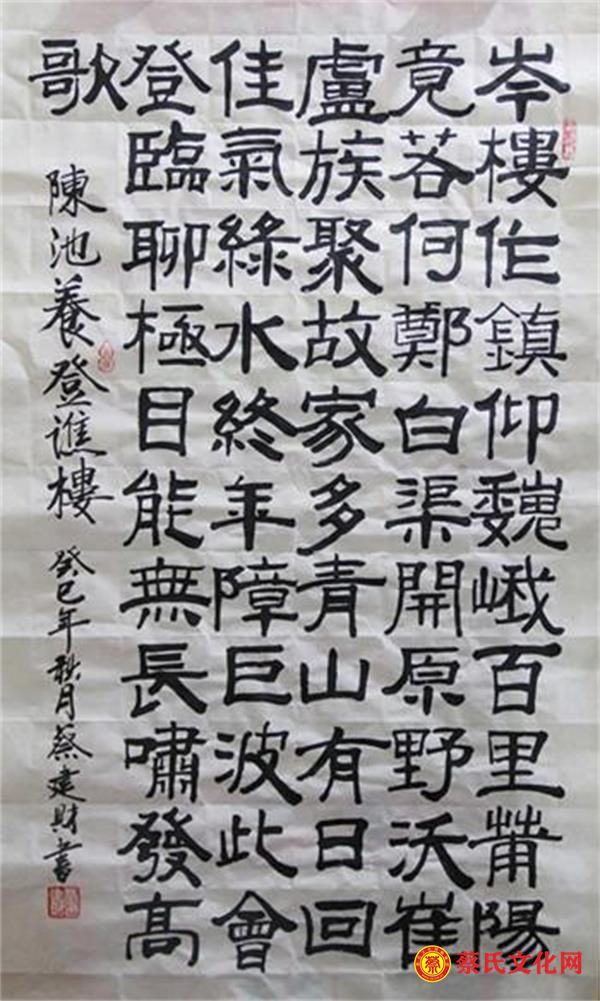 岑樓作鎮仰巍峨百里莆陽
竟若何鄭白渠開原野沃崔
盧族聚故家多青山有日回
佳氣綠水終年障巨波此會
登臨聊極目能無長嘯發高
歌
陳池養登譙樓 癸巳年秋月蔡建財書
蔡氏文化网